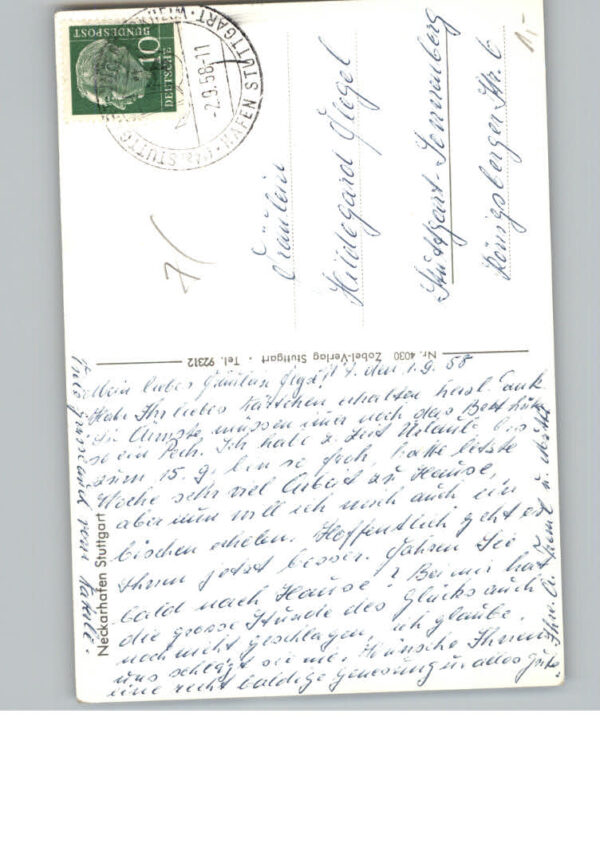 DEUTSCHE
BUNDESPOST
10
STUTTGART
HAFEN STUTTGART
-2.9.58-11
1,-
Fräulein
Hildegard Giegel
Stuttgart-Sonnenberg
Königsberger Str. 6
Nr. 4030 Zobel-Verlag Stuttgart · Tel. 92312
Neckarhafen Stuttgart
Mein liebes Fräulein den 1.9.58
Habe Ihr liebes Kärtchen erhalten herzl. Dank
Sie Ärmste müssen immer noch das Bett hüten
so ein Pech. Ich habe z. Zeit Urlaub bis
zum 15.9. bin so froh, hatte letzte
Woche sehr viel Arbeit zu Hause,
aber nun will ich mich auch ein
bischen erholen. Hoffentlich geht es
Ihnen jetzt besser. Fahren Sie
bald nach Hause? Bei mir hat
die grosse Stunde des Glücks auch
noch nicht geschlagen, ich glaube,
uns schlägt sie nie. Wünsche Ihnen
eine recht baldige Genesung u. alles Gute
Ihre